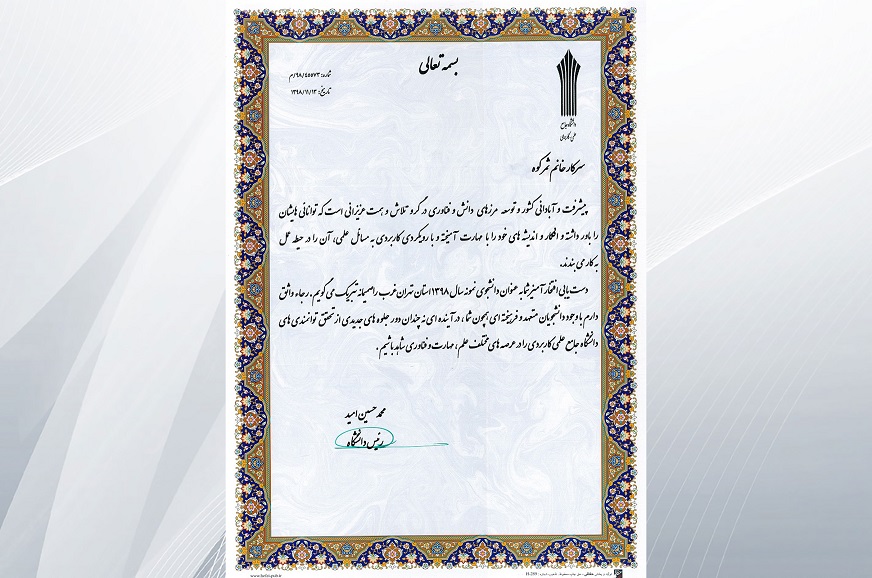 بسمه تعالی
شماره: ۹۸/۴۵۵۷۳/م
تاریخ: ۱۳۹۸/۱۱/۱۳
دانشگاه جامع
علمی کاربردی
سرکار خانم ثمرکوه
پیشرفت و آبادانی کشور و توسعه مرزهای دانش و فناوری در گرو تلاش و همت عزیزانی است که توانائی هایشان
را باور داشته و افکار و اندیشه های خود را با مهارت آمیخته و با رویکردی کاربردی به مسائل علمی، آن را در حیطه عمل
به کار می بندند.
دست یابی افتخارآمیز شما به عنوان دانشجوی نمونه سال ۱۳۹۸ استان تهران غرب را صمیمانه تبریک می گویم. رجاء واثق
دارم با وجود دانشجویان متعهد و فرهیخته ای همچون شما، در آینده ای نه چندان دور جلوه های جدیدی از تحقق توانمندی های
دانشگاه جامع علمی کاربردی را در عرصه های مختلف علم، مهارت و فناوری شاهد باشیم.
محمد حسین امید
رئیس دانشگاه